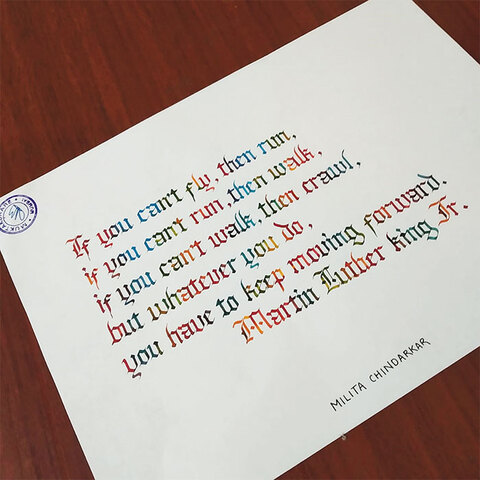 If you can't fly, then run,
if you can't run, then walk,
if you can't walk, then crawl,
but whatever you do,
you have to keep moving forward.
Martin Luther king Jr.
MILITA CHINDARKAR